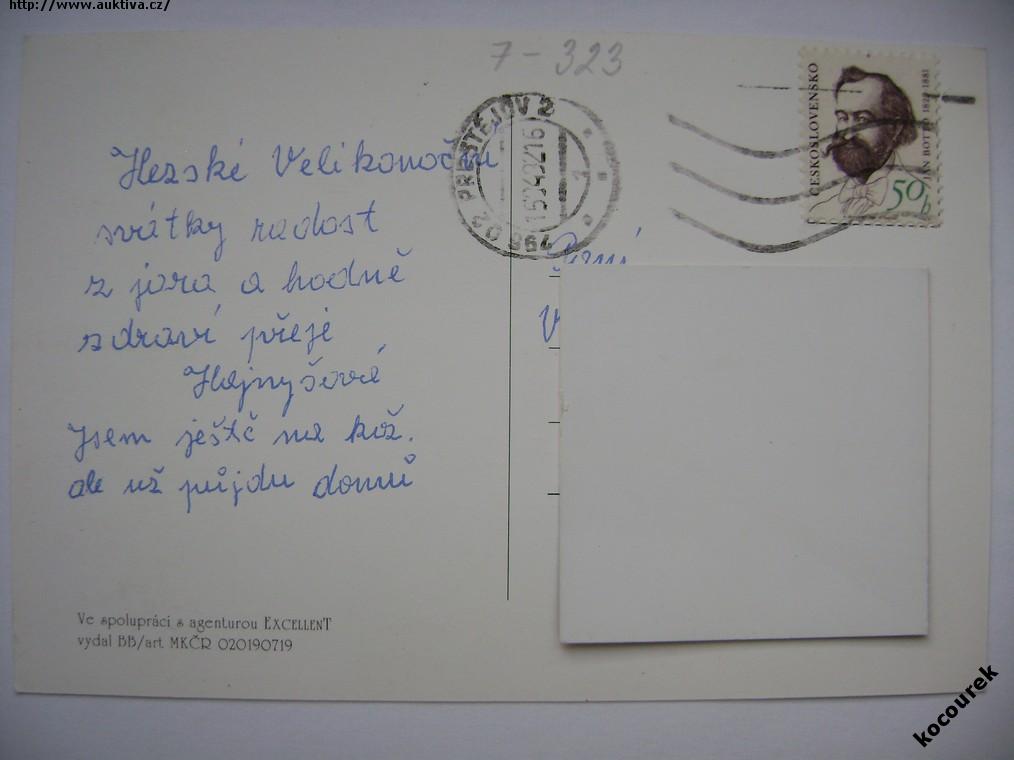 http://www.auktiva.cz/
7-323
PROSTĚJOV 2
15.04.92.16
796 02
1
ČESKOSLOVENSKO
JÁN BOTTO 1829-1881
50h
Hezské Velikonoční
svátky radost
z jara a hodně
zdraví přeje
Hajnyšová
Jsem ještě na kož.
ale už půjdu domů
Paní
V
Ve spolupráci s agenturou EXCELLENT
vydal BB/art MKČR 020190719
kocourek